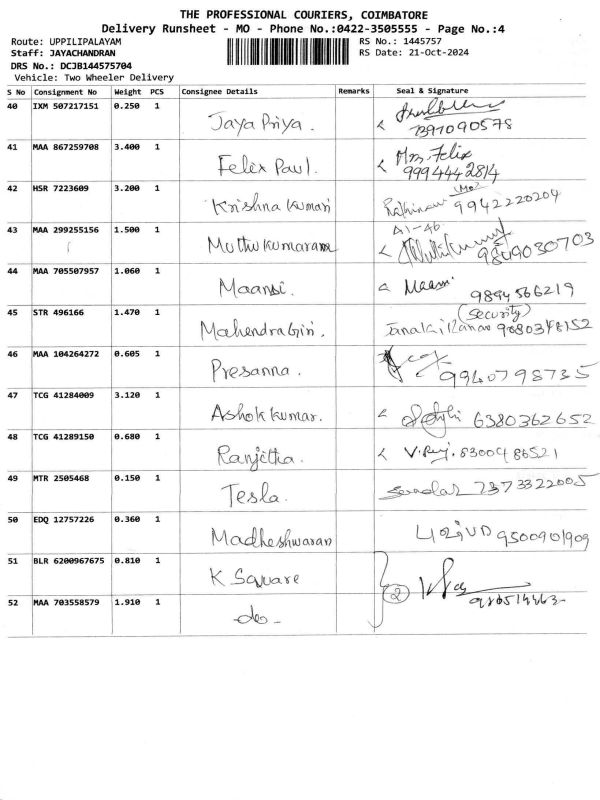 THE PROFESSIONAL COURIERS, COIMBATORE
Delivery Runsheet - MO - Phone No.:0422-3505555 - Page No.:4
Route: UPPILIPALAYAM RS No.: 1445757
Staff: JAYACHANDRAN RS Date: 21-Oct-2024
DRS No.: DCJB144575704
Vehicle: Two Wheeler Delivery
S No Consignment No Weight PCS Consignee Details Remarks Seal & Signature
40 IXM 507217151 0.250 1
Jaya Priya.
41 MAA 867259708 3.400 1 Mrs. Felix
Felex Paul. 9994442814
42 HSR 7223609 3.200 1
Krishna Kumari 9942220204
43 MAA 299255156 1.500 1 A1-46
Muthukumaram 9809030703
44 MAA 705507957 1.060 1
Maansi. Maansi 9894566219
45 STR 496166 1.470 1 (Security)
Mahendra Giri. 9880348152
46 MAA 104264272 0.605 1
Presanna. 9940798735
47 TCG 41284009 3.120 1
Ashok kumar. 6380362652
48 TCG 41289150 0.680 1
Ranjitha. 8300486521
49 MTR 2505468 0.150 1
Tesla. 7373322005
50 EDQ 12757226 0.360 1
Madheshwaran 9500901909
51 BLR 6200967675 0.810 1
K Square 2
52 MAA 703558579 1.910 1
-do-